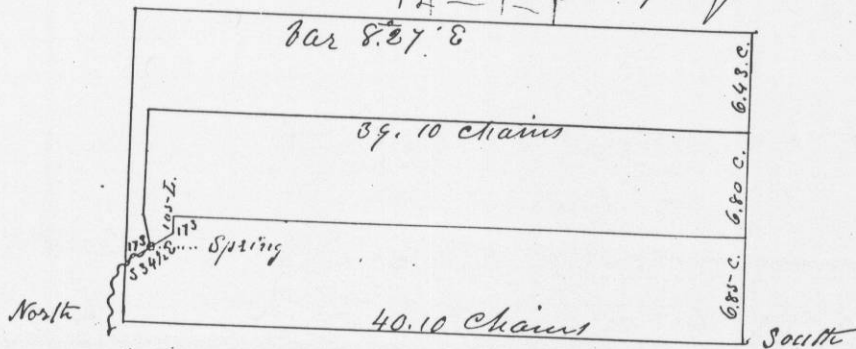 Var 8.27' E
6.43. C.
39.10 Chains
6.80 C.
105-L.
173
173
Spring
S 34 1/2 E
6.85-C.
North
40.10 Chains
South